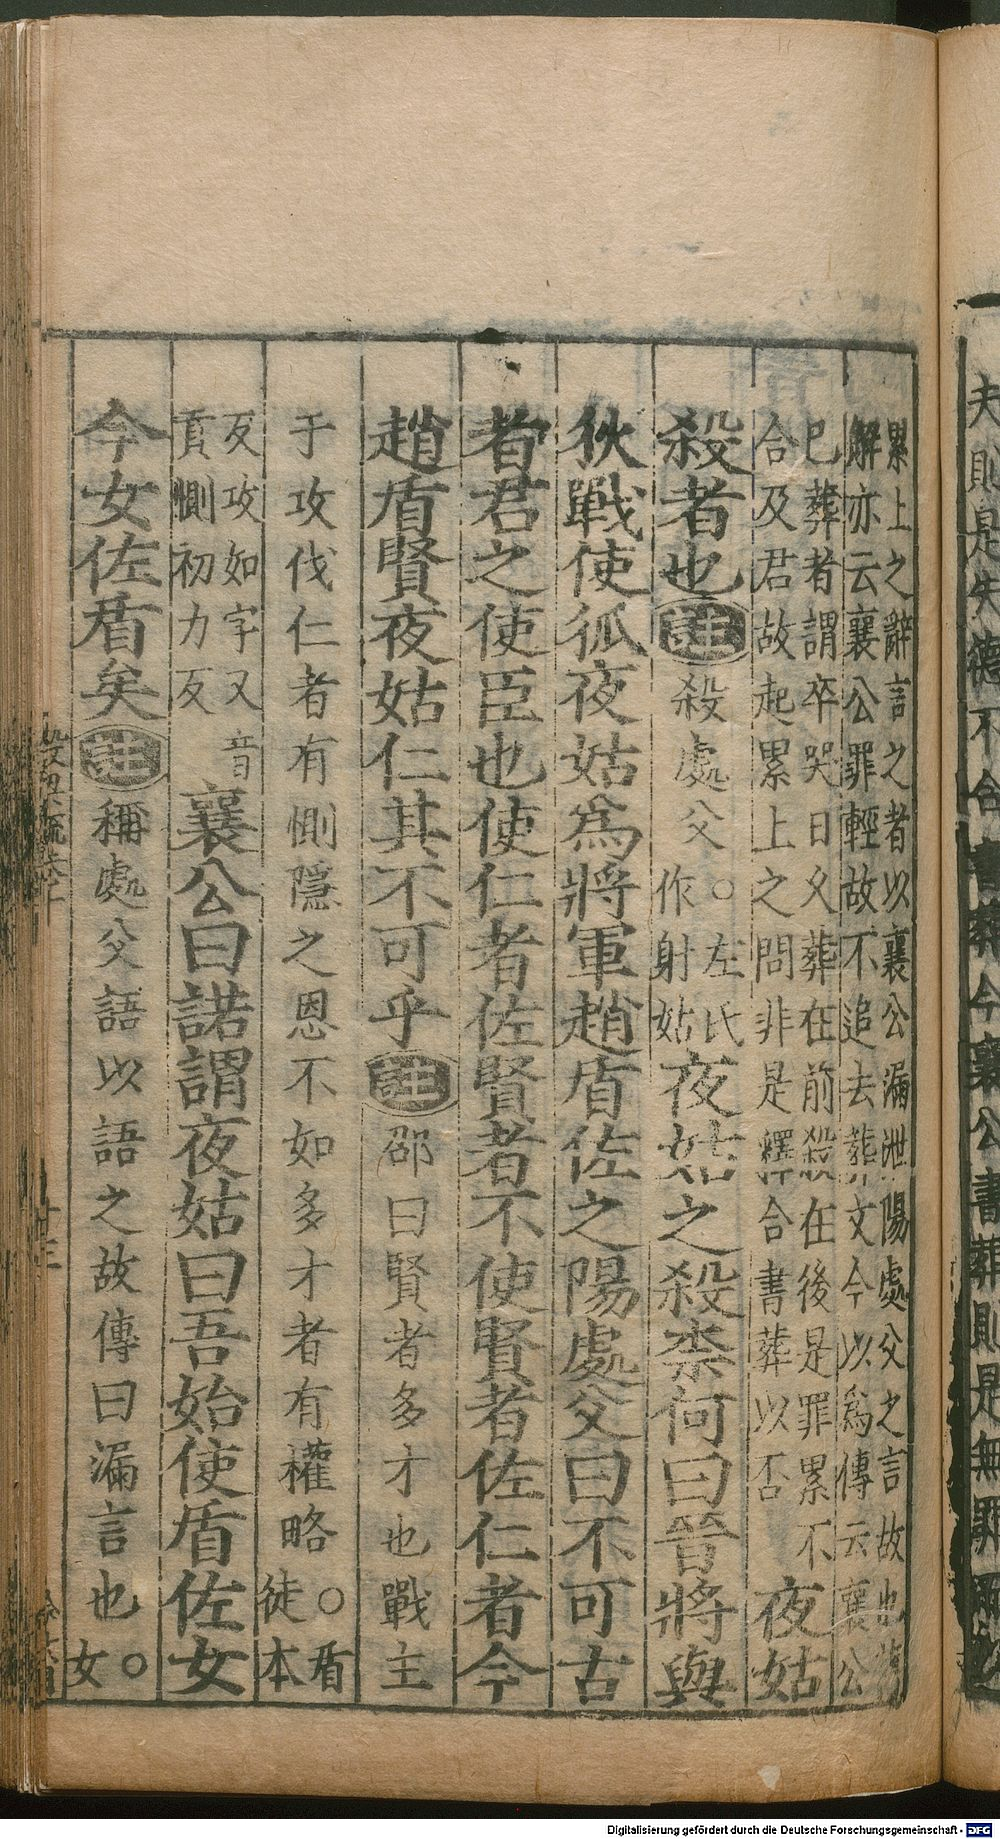 夫則是失德不合書葬今襄公書葬則是無罪
累上之辭言之者以襄公漏泄陽處父之言故也
解亦云襄公罪輕故不追去葬文今以為傳云襄公
已葬者謂卒哭日久葬在前殺在後是罪累不
合及君故起累上之問非是釋合書葬以否
夜姑
殺者也
註
殺處父
○左氏
作射姑
夜姑之殺柰何曰晉將與
狄戰使狐夜姑為將軍趙盾佐之陽處父曰不可古
者君之使臣也使仁者佐賢者不使賢者佐仁者今
趙盾賢夜姑仁其不可乎
註
邵曰賢者多才也戰主
于攻伐仁者有惻隱之恩不如多才者有權略
○盾
徒本
反攻如字又音
貢惻初力反
襄公曰諾謂夜姑曰吾始使盾佐女
今女佐盾矣
註
稱處父語以語之故傳曰漏言也
○
女
Digitalisierung gefördert durch die Deutsche Forschungsgemeinschaft - DFG